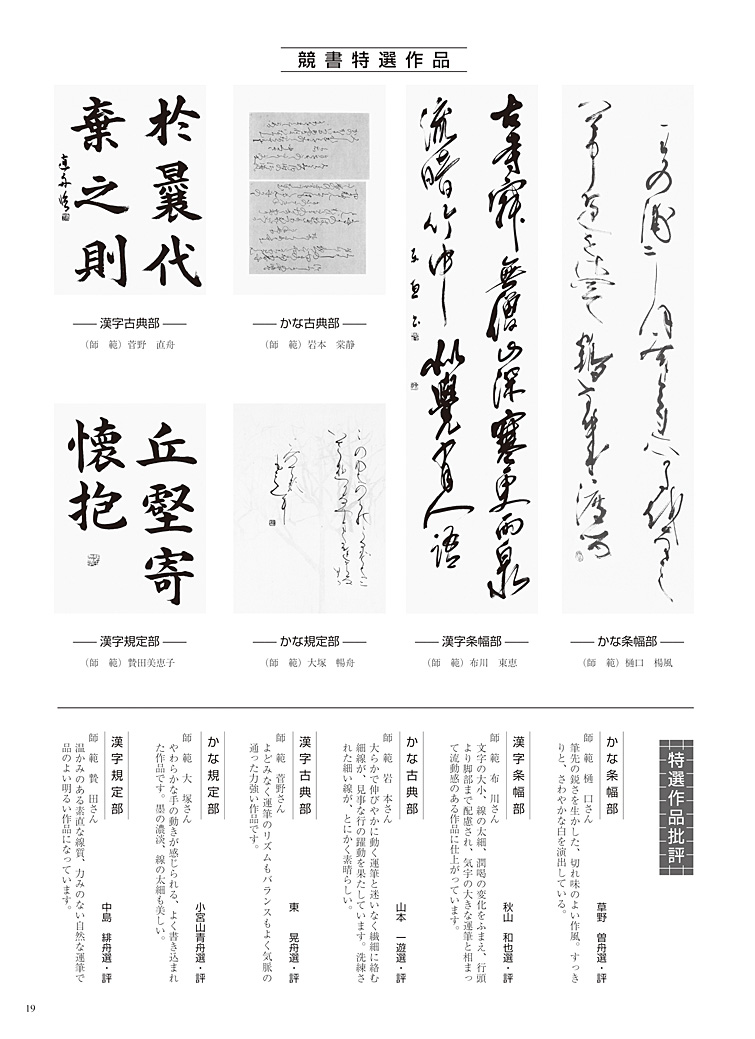 競書特選作品
古寺寂無僧山深寒更雨泉
流暗竹中似覺有人語
於曩代
棄之則
直舟臨
漢字古典部
（師　範）菅野　直舟
かな古典部
（師　範）岩本　栄静
丘壑寄
懐抱
漢字規定部
（師　範）贄田美恵子
かな規定部
（師　範）大塚　暢舟
漢字条幅部
（師　範）布川　東恵
かな条幅部
（師　範）樋口　楊風
特選作品批評
かな条幅部
草野　曽舟選・評
師　範　樋　口さん
筆先の鋭さを生かした、切れ味のよい作風。すっき
りと、さわやかな白を演出している。
漢字条幅部
秋山　和也選・評
師　範　布　川さん
文字の大小、線の太細、潤喝の変化をふまえ、行頭
より脚部まで配慮され、気宇の大きな運筆と相まっ
て流動感のある作品に仕上がっています。
かな古典部
山本　一遊選・評
師　範　岩　本さん
大らかで伸びやかに動く運筆と迷いなく繊細に絡む
細線が、見事な行の躍動を果たしています。洗練さ
れた細い線が、とにかく素晴らしい。
漢字古典部
東　晃舟選・評
師　範　菅野さん
よどみなく運筆のリズムもバランスもよく気脈の
通った力強い作品です。
かな規定部
小宮山青舟選・評
師　範　大　塚さん
やわらかな手の動きが感じられる、よく書き込まれ
た作品です。墨の濃淡、線の太細も美しい。
漢字規定部
中島　緋舟選・評
師　範　贄　田さん
温かみのある素直な線質、力みのない自然な運筆で
品のよい明るい作品になっています。
19